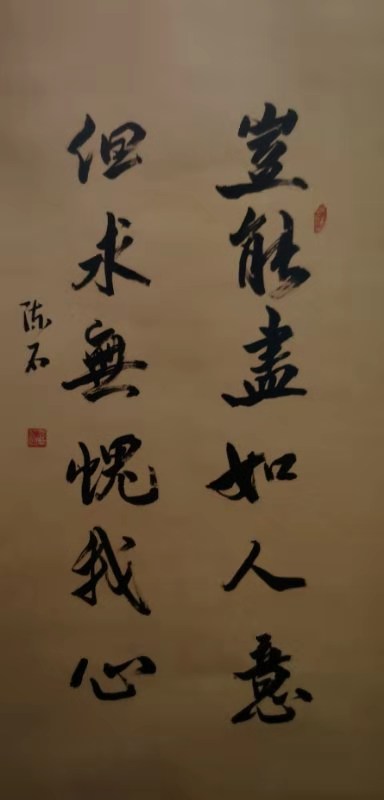 豈能盡如人意
但求無愧我心
陈石